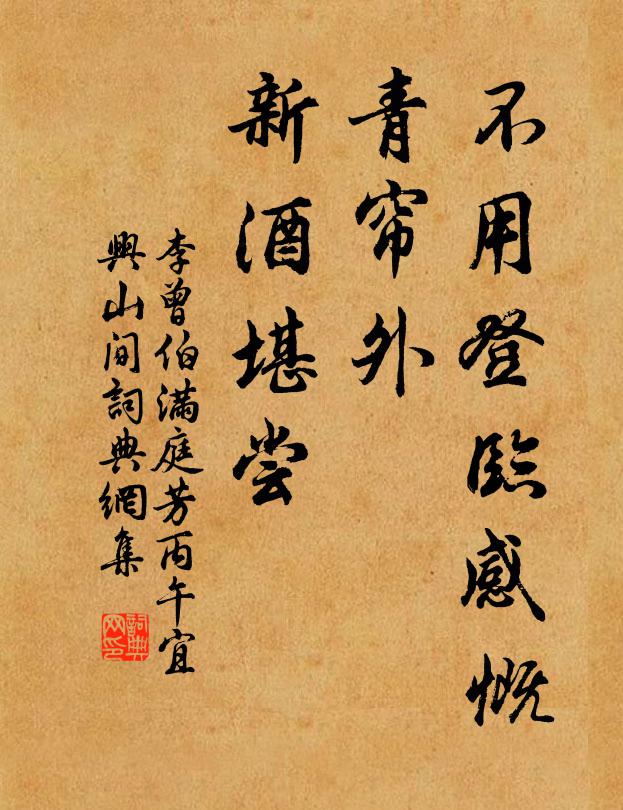 不用登臨感慨
青帘外
新酒堪尝
李曾伯滿庭芳丙午宜
興山間詞典網集
詞典
网印